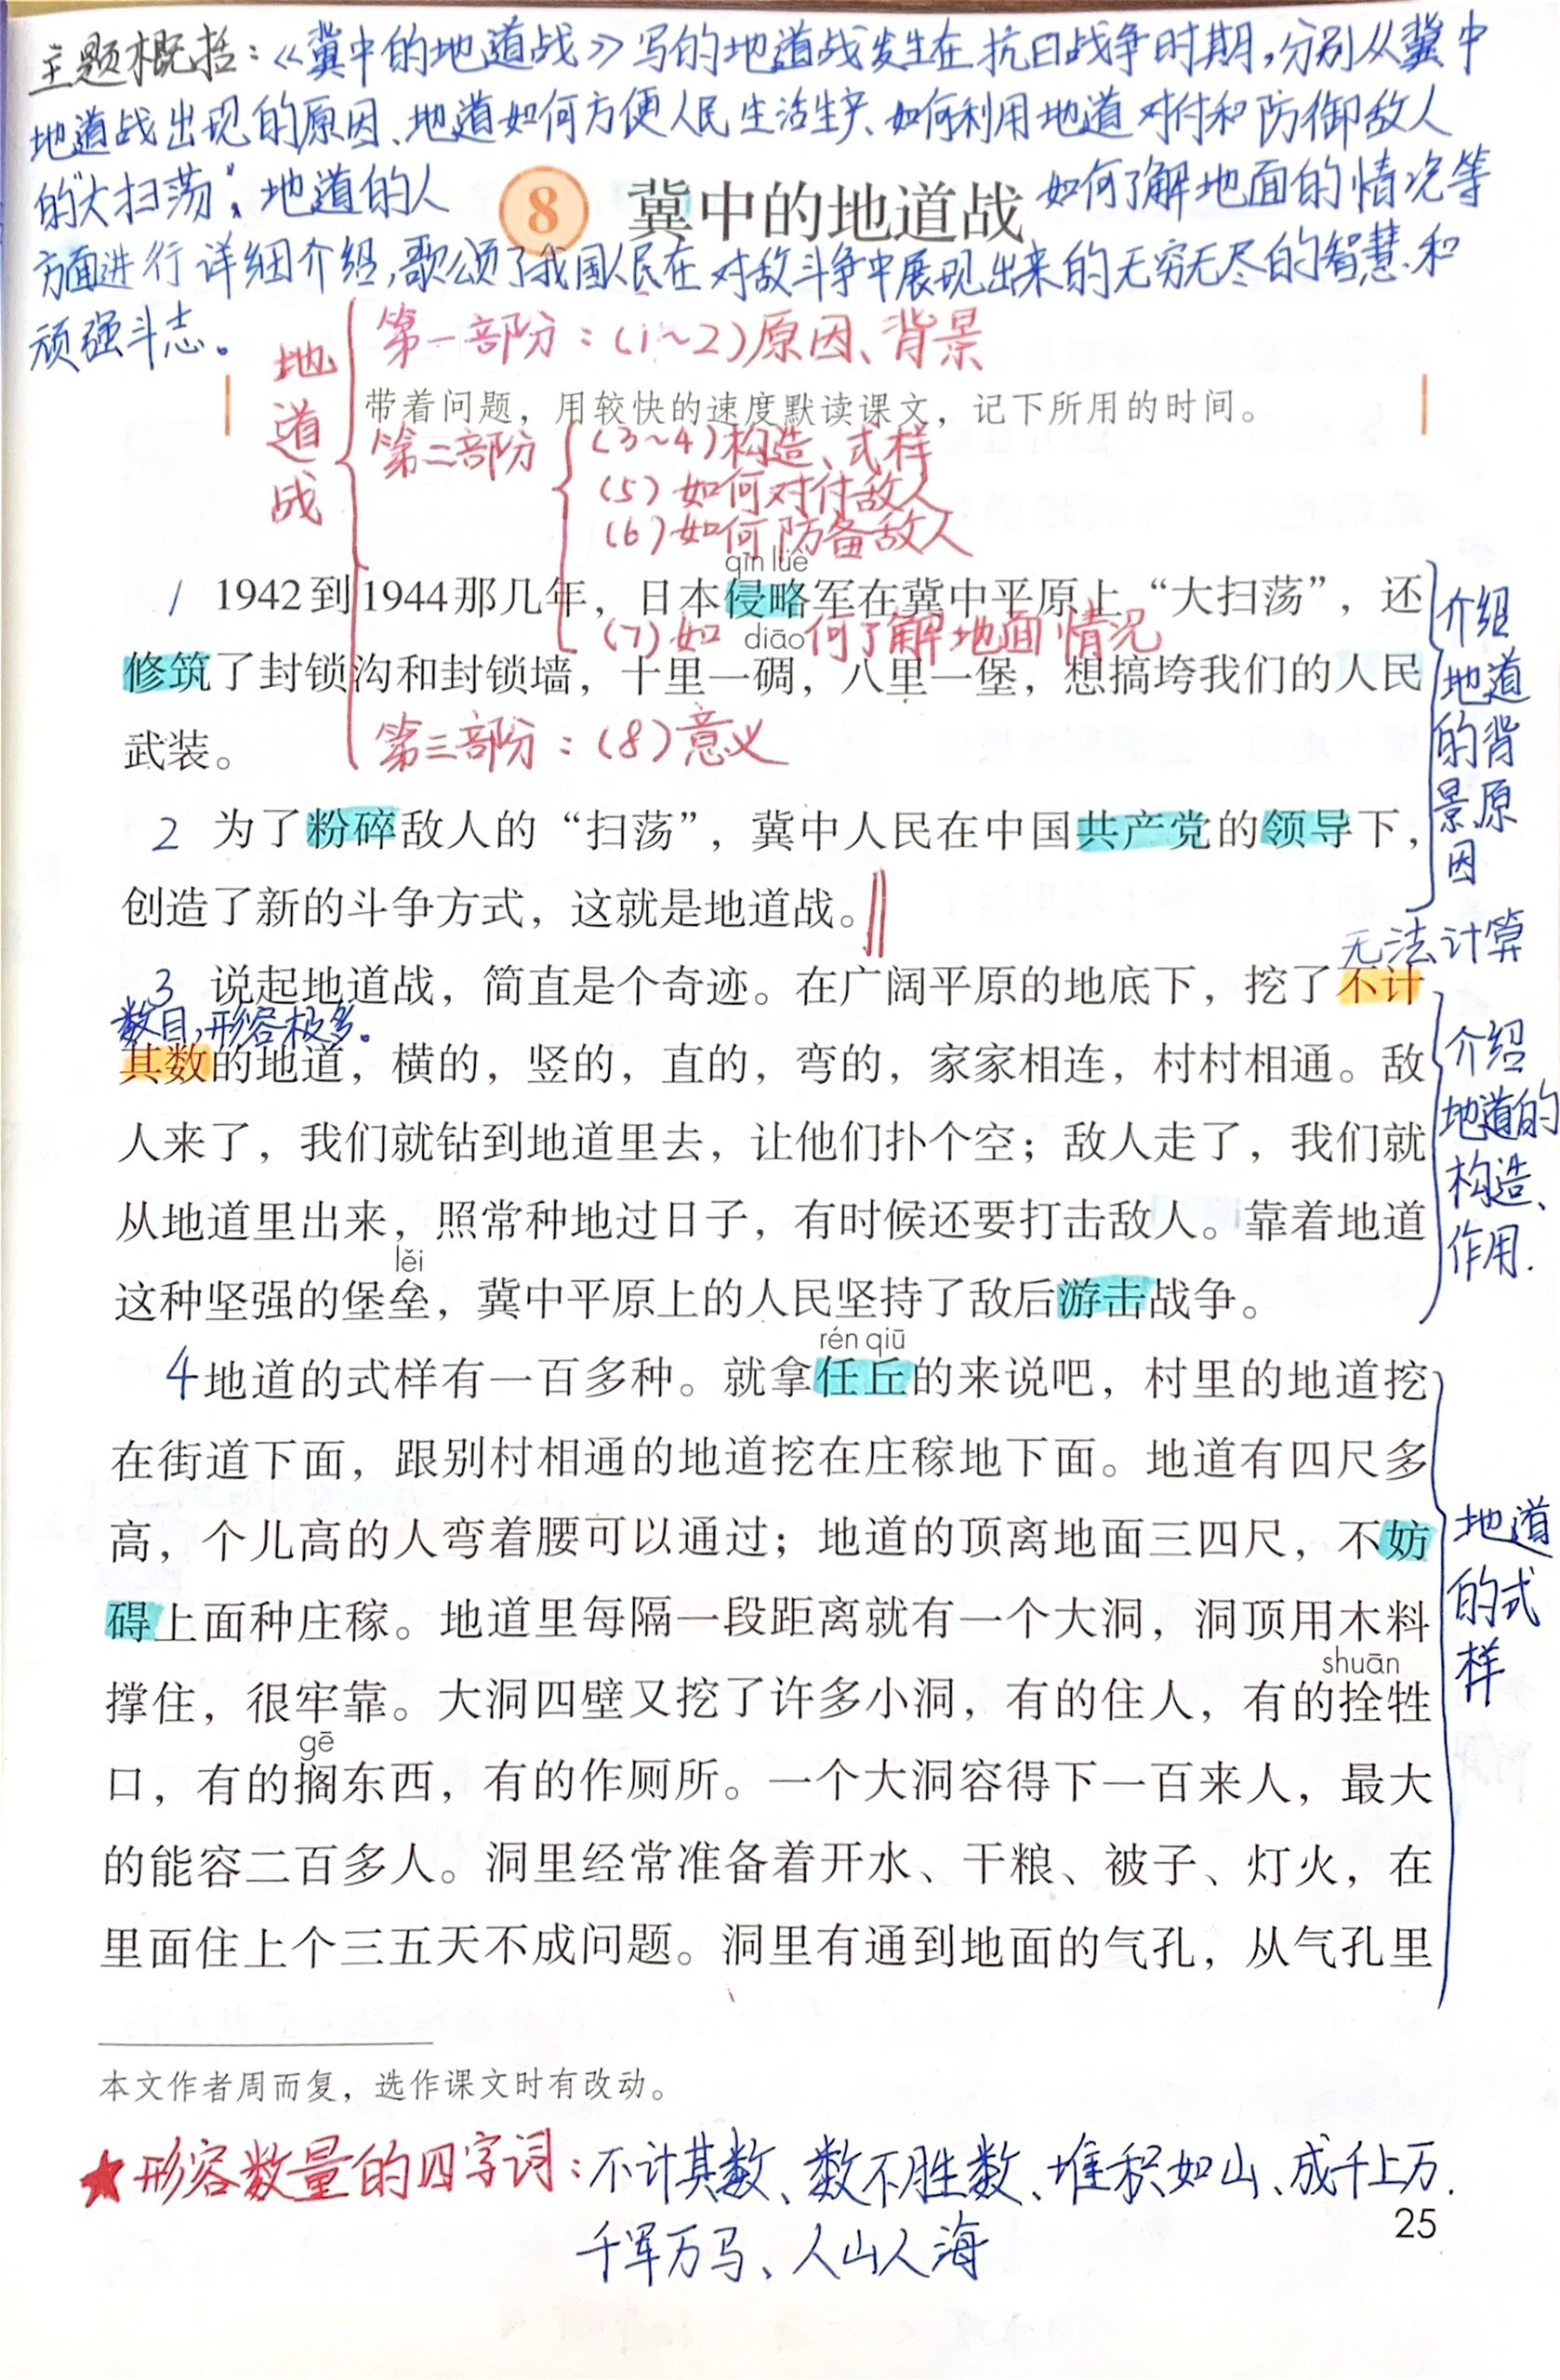 主题概括：《冀中的地道战》写的地道战发生在抗日战争时期,分别从冀中
地道战出现的原因、地道如何方便人民生活生产、如何利用地道对付和防御敌人
的“大扫荡”、地道的人
如何了解地面的情况等
8 冀中的地道战
方面进行详细介绍,歌颂了我国人民在对敌斗争中展现出来的无穷无尽的智慧和
顽强斗志。
地道战
第一部分：(1~2)原因、背景
带着问题，用较快的速度默读课文，记下所用的时间。
第二部分
(3~4)构造、式样
(5)如何对付敌人
(6)如何防备敌人
qīn lüè
1 1942到1944那几年，日本侵略军在冀中平原上“大扫荡”，还
(7)如何了解地面情况
diāo
修筑了封锁沟和封锁墙，十里一碉，八里一堡，想搞垮我们的人民
武装。
第三部分：(8)意义
介绍
地道
的背
景原
因
2 为了粉碎敌人的“扫荡”，冀中人民在中国共产党的领导下，
创造了新的斗争方式，这就是地道战。
无法计算
3 说起地道战，简直是个奇迹。在广阔平原的地底下，挖了不计
数目,形容极多。
其数的地道，横的，竖的，直的，弯的，家家相连，村村相通。敌
人来了，我们就钻到地道里去，让他们扑个空；敌人走了，我们就
从地道里出来，照常种地过日子，有时候还要打击敌人。靠着地道
lěi
这种坚强的堡垒，冀中平原上的人民坚持了敌后游击战争。
介绍
地道的
构造、
作用.
rén qiū
4 地道的式样有一百多种。就拿任丘的来说吧，村里的地道挖
在街道下面，跟别村相通的地道挖在庄稼地下面。地道有四尺多
高，个儿高的人弯着腰可以通过；地道的顶离地面三四尺，不妨
碍上面种庄稼。地道里每隔一段距离就有一个大洞，洞顶用木料
shuān
撑住，很牢靠。大洞四壁又挖了许多小洞，有的住人，有的拴牲
gē
口，有的搁东西，有的作厕所。一个大洞容得下一百来人，最大
的能容二百多人。洞里经常准备着开水、干粮、被子、灯火，在
里面住上个三五天不成问题。洞里有通到地面的气孔，从气孔里
地道
的式
样
本文作者周而复，选作课文时有改动。
★形容数量的四字词：不计其数、数不胜数、堆积如山、成千上万.
25
千军万马、人山人海